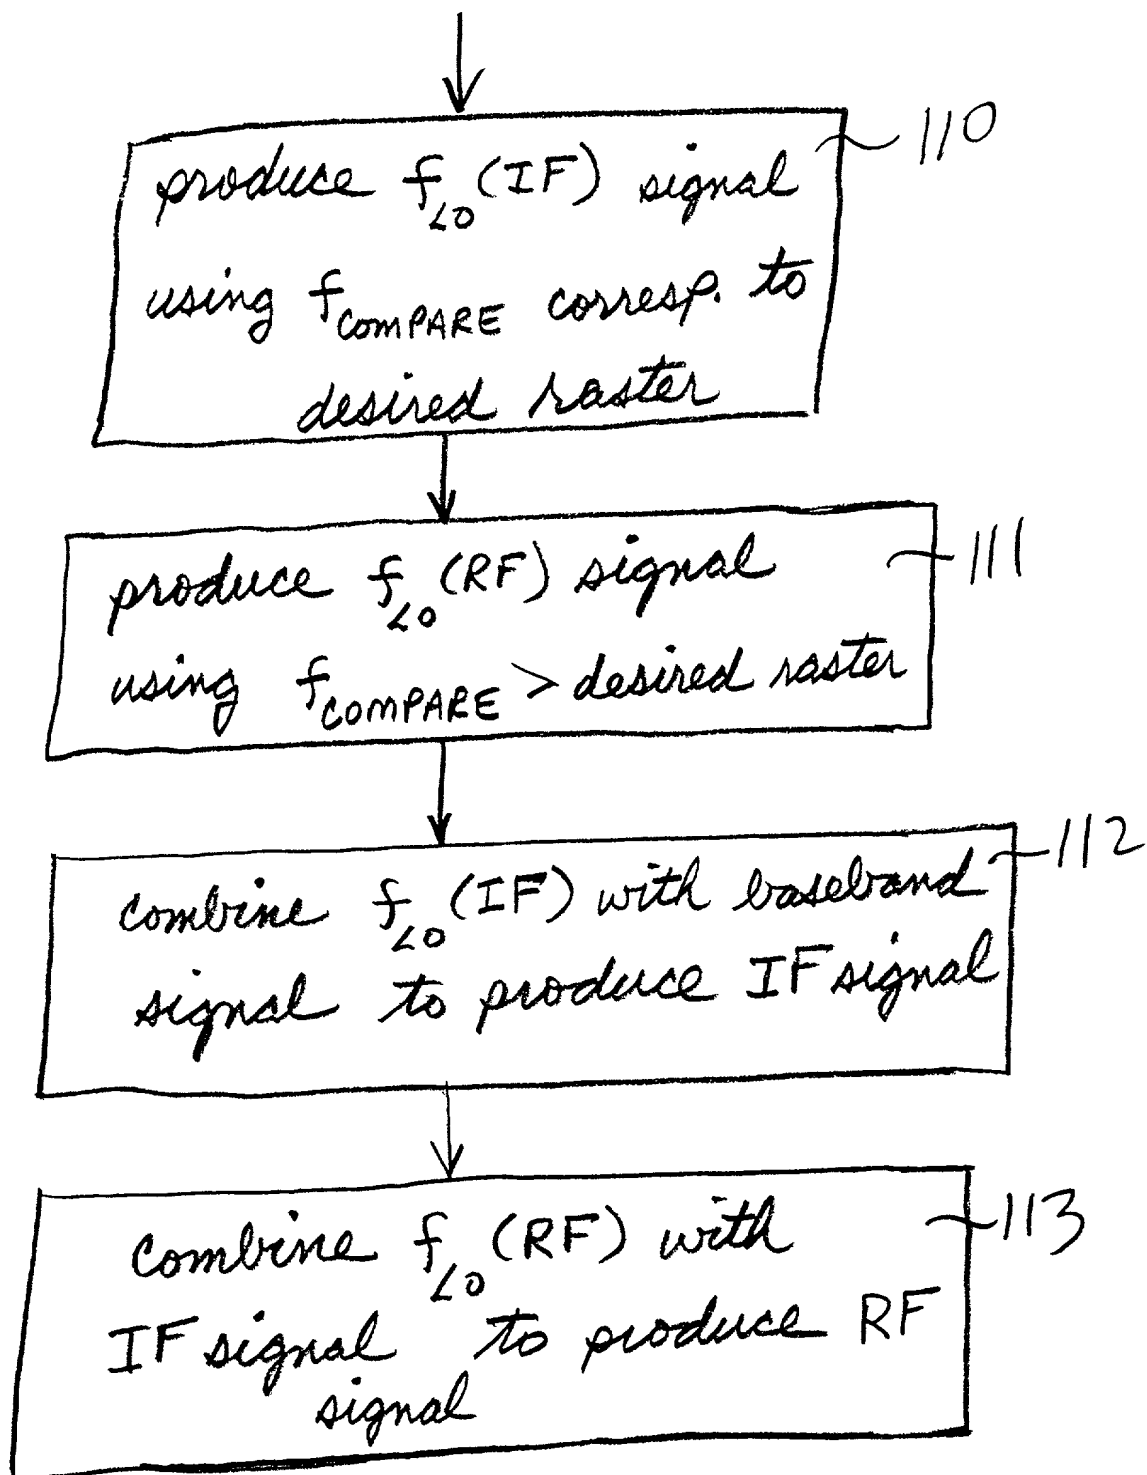 produce f_LO (IF) signal 110
using f_COMPARE corresp. to
desired raster
produce f_LO (RF) signal 111
using f_COMPARE > desired raster
combine f_LO (IF) with baseband 112
signal to produce IF signal
combine f_LO (RF) with 113
IF signal to produce RF
signal